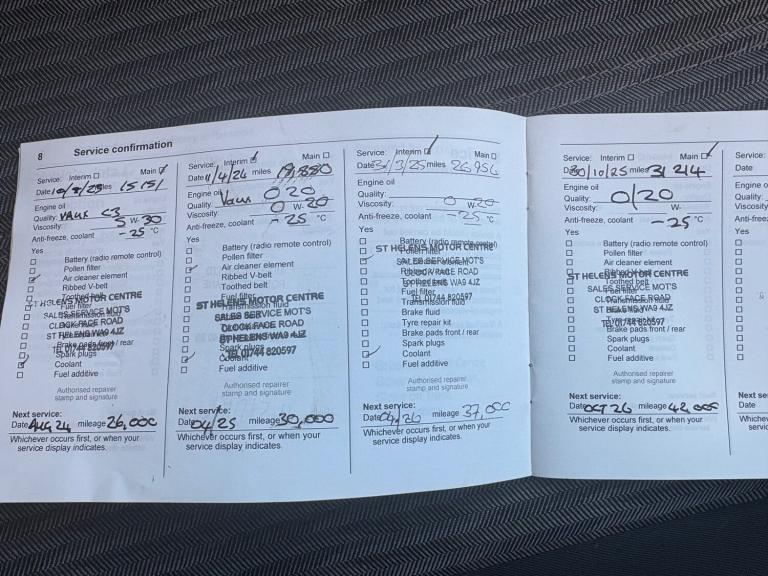 8 Service confirmation
Service: Interim ☐ Main ☑
miles 15151
Engine oil
Quality: VAUX C3
Viscosity: 5 W- 30
Anti-freeze, coolant -25 °C
Yes
☐ Battery (radio remote control)
☐ Pollen filter
☑ Air cleaner element
☐ Ribbed V-belt
☐ Toothed belt
☐ Fuel filter
ST HELENS MOTOR CENTRE
SALES SERVICE MOT'S
CLOCK FACE ROAD
ST HELENS WA9 4JZ
TEL 01744 820597
☐ Brake pads front / rear
☐ Spark plugs
☑ Coolant
☐ Fuel additive
Authorised repairer
stamp and signature
Next service:
Date AUG 24 mileage 26,000
Whichever occurs first, or when your
service display indicates.
Service: Interim ☑ Main ☐
Date 11/4/24 miles 19,880
Engine oil
Quality: Vaux 0 20
Viscosity: 0 W- 20
Anti-freeze, coolant -25 °C
Yes
☐ Battery (radio remote control)
☐ Pollen filter
☑ Air cleaner element
☐ Ribbed V-belt
☐ Toothed belt
☐ Fuel filter
☐ Transmission fluid
ST HELENS MOTOR CENTRE
SALES SERVICE MOT'S
CLOCK FACE ROAD
ST HELENS WA9 4JZ
TEL 01744 820597
☐ Spark plugs
☑ Coolant
☐ Fuel additive
Authorised repairer
stamp and signature
Next service:
Date 04/25 mileage 30,000
Whichever occurs first, or when your
service display indicates.
Service: Interim ☑ Main ☐
Date 31/3/25 miles 26956
Engine oil
Quality:
Viscosity: 0 W- 20
Anti-freeze, coolant -25 °C
Yes
☐ Battery (radio remote control)
☐ Pollen filter
ST HELENS MOTOR CENTRE
SALES SERVICE MOT'S
CLOCK FACE ROAD
ST HELENS WA9 4JZ
TEL 01744 820597
☑ Air cleaner element
☐ Ribbed V-belt
☐ Toothed belt
☐ Fuel filter
☐ Transmission fluid
☐ Brake fluid
☐ Tyre repair kit
☐ Brake pads front / rear
☐ Spark plugs
☑ Coolant
☐ Fuel additive
Authorised repairer
stamp and signature
Next service:
Date 04/26 mileage 37,000
Whichever occurs first, or when your
service display indicates.
Service: Interim ☐ Main ☑
Date 30/10/25 miles 31 214
Engine oil
Quality: 0/20
Viscosity:
Anti-freeze, coolant -25 °C
Yes
☐ Battery (radio remote control)
☐ Pollen filter
☐ Air cleaner element
☐ Ribbed V-belt
ST HELENS MOTOR CENTRE
SALES SERVICE MOT'S
CLOCK FACE ROAD
ST HELENS WA9 4JZ
TEL 01744 820597
☐ Fuel filter
☐ Brake fluid
☐ Tyre repair kit
☐ Brake pads front / rear
☐ Spark plugs
☐ Coolant
☐ Fuel additive
Authorised repairer
stamp and signature
Next service:
Date OCT 26 mileage 42,000
Whichever occurs first, or when your
service display indicates.
Service:
Date
Engine o
Quality:
Viscosity:
Anti-freeze,
Yes
Next se
Date
Whichev
servic